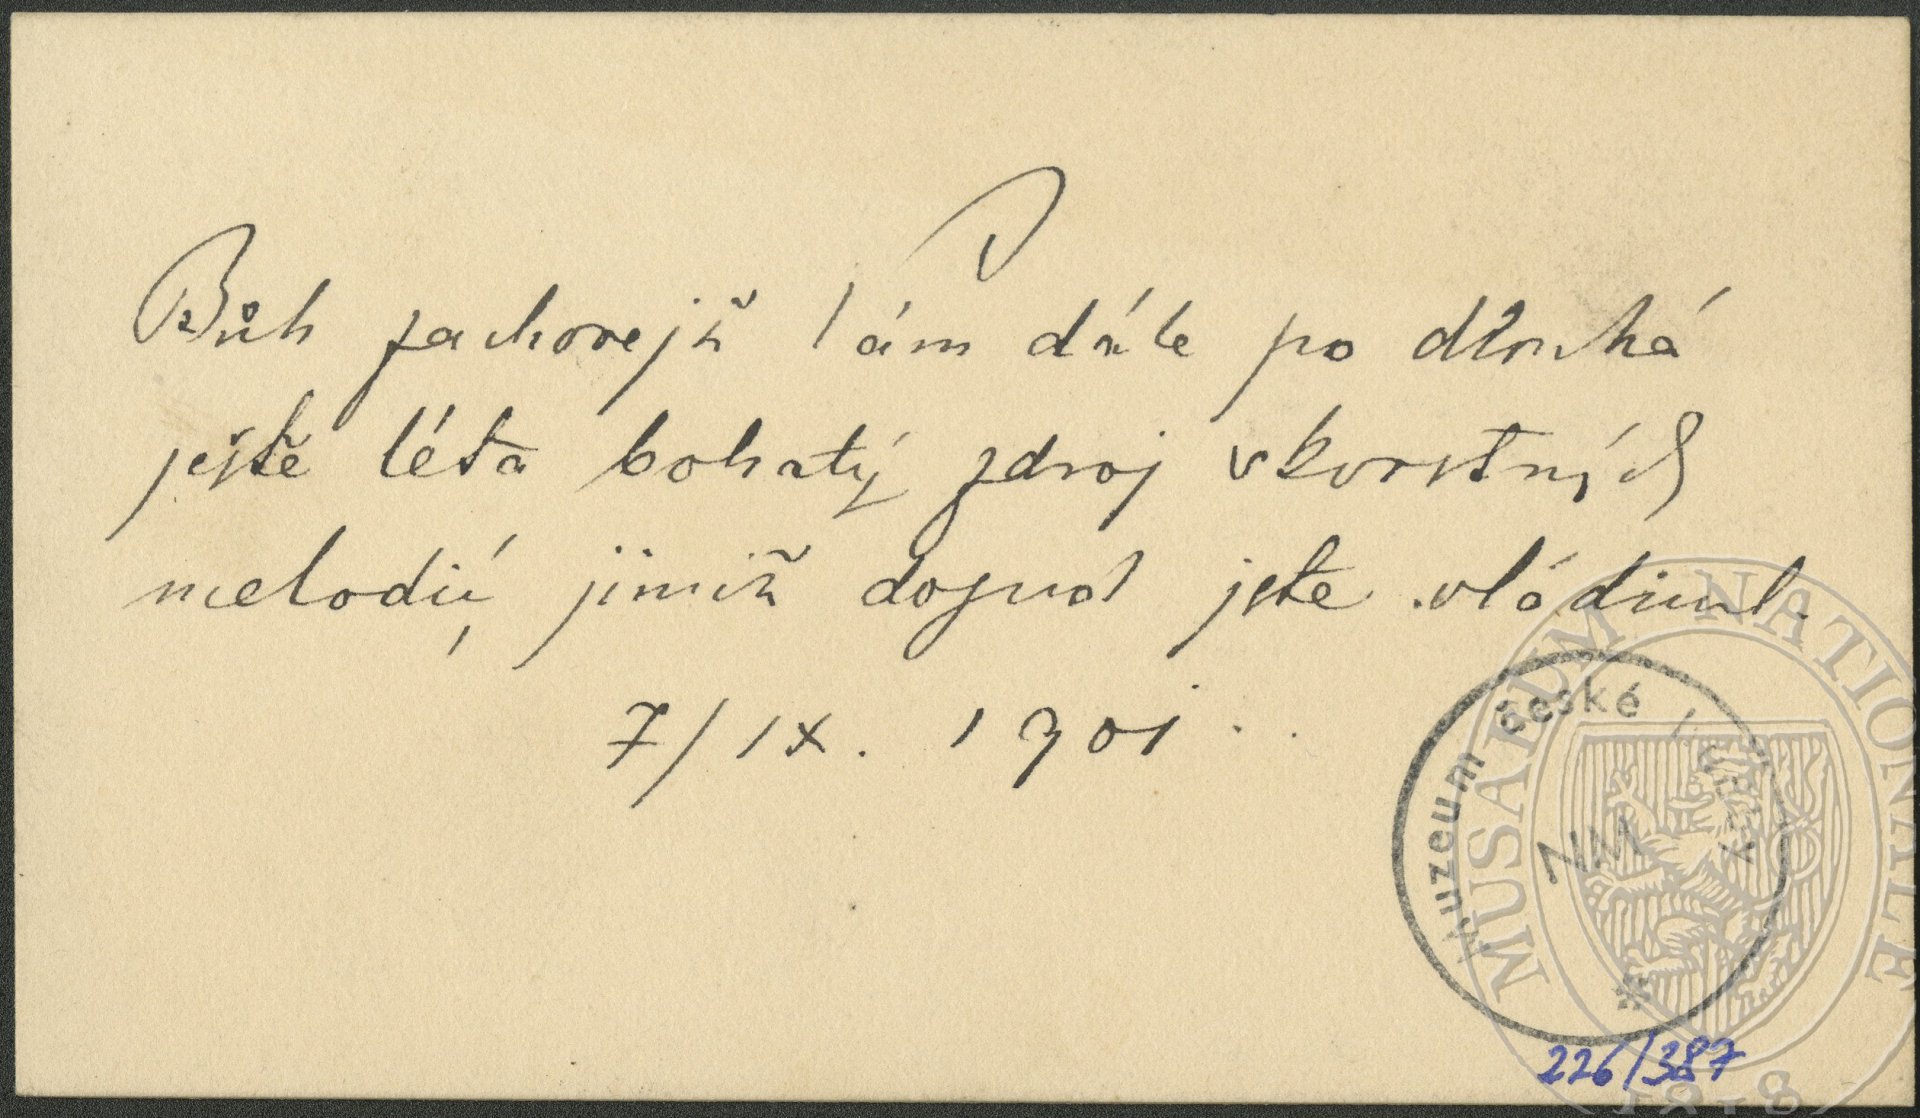 Bůh zachovejž Vám dále po dlouhá
ještě léta bohatý zdroj skvostných
melodií, jimiž doposud jste vládnul.
7/IX. 1901.
Muzeum české hudby
NM
MUSAEUM NATIONALE
1818
226/387